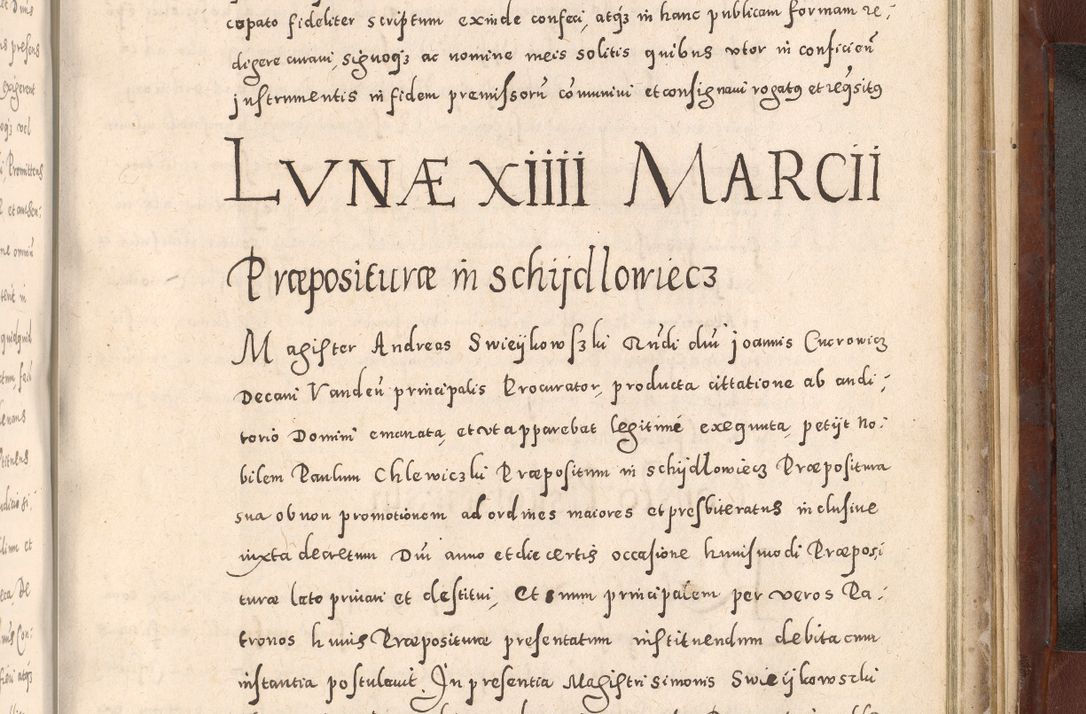 copato fideliter scriptum exinde confeci, atq3 in hanc publicam formam re,
digere curavi, signoq3 ac nomine meis solitis quibus utor in conficien̄
instrumentis in fidem premissorū cōmunivi et consignavi rogatus et req̄situs
LVNÆ XIIII MARCII
Præpositurae in Schijdlowiecz
Magister Andreas Swieykowszki Rn̄di dn̄i Joannis Cucrowicz
Decani Vanden̄ principalis Procurator, producta cittatione ab audi,
torio Domini emanata, et ut apparebat legitimé exequuta, petijt No,
bilem Paulum Chlewiczki Præpositum in schijdlowiecz Præpositura
sua ob non promotionem ad ordines maiores et presbiteratus inclusive
iuxta decretum Dn̄i anno et die certis occasione huiusmodi Præposi
turæ lato privari et destitui, Et suum principalem per veros Pa,
tronos huius Præpositurae presentatum instituendum debita cum
instantia postulavit. In presentia Magistri Simonis Swieijkowszki